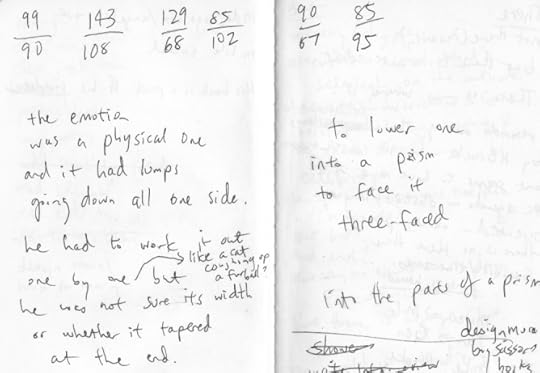 99 143 129 85
90 108 68 102
the emotion
was a physical one
and it had lumps
going down all one side.
he had to work it out
like a cat
coughing up
a furball?
one by one but
he was not sure its width
or whether it tapered
at the end.
90 85
67 95
to lower one
into a prism
to face it
three-faced
into the parts of a prism
design more
by
books